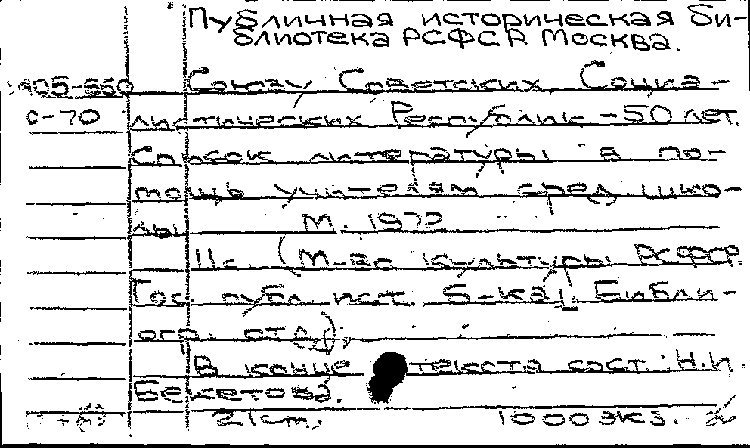 Публичная историческая Би-
блиотека РСФСР Москва.
Союзу Советских Социа-
С-70 листических Республик - 50 лет.
Список литературы в по-
мощь учителям сред. шко-
лы. М. 1972
11с. (М-во культуры РСФСР.
Гос. публ. ист. б-ка. Библи-
огр. отд.)
В конце текста сост.: Н.И.
Бекетова.
21 см. 1000 экз.